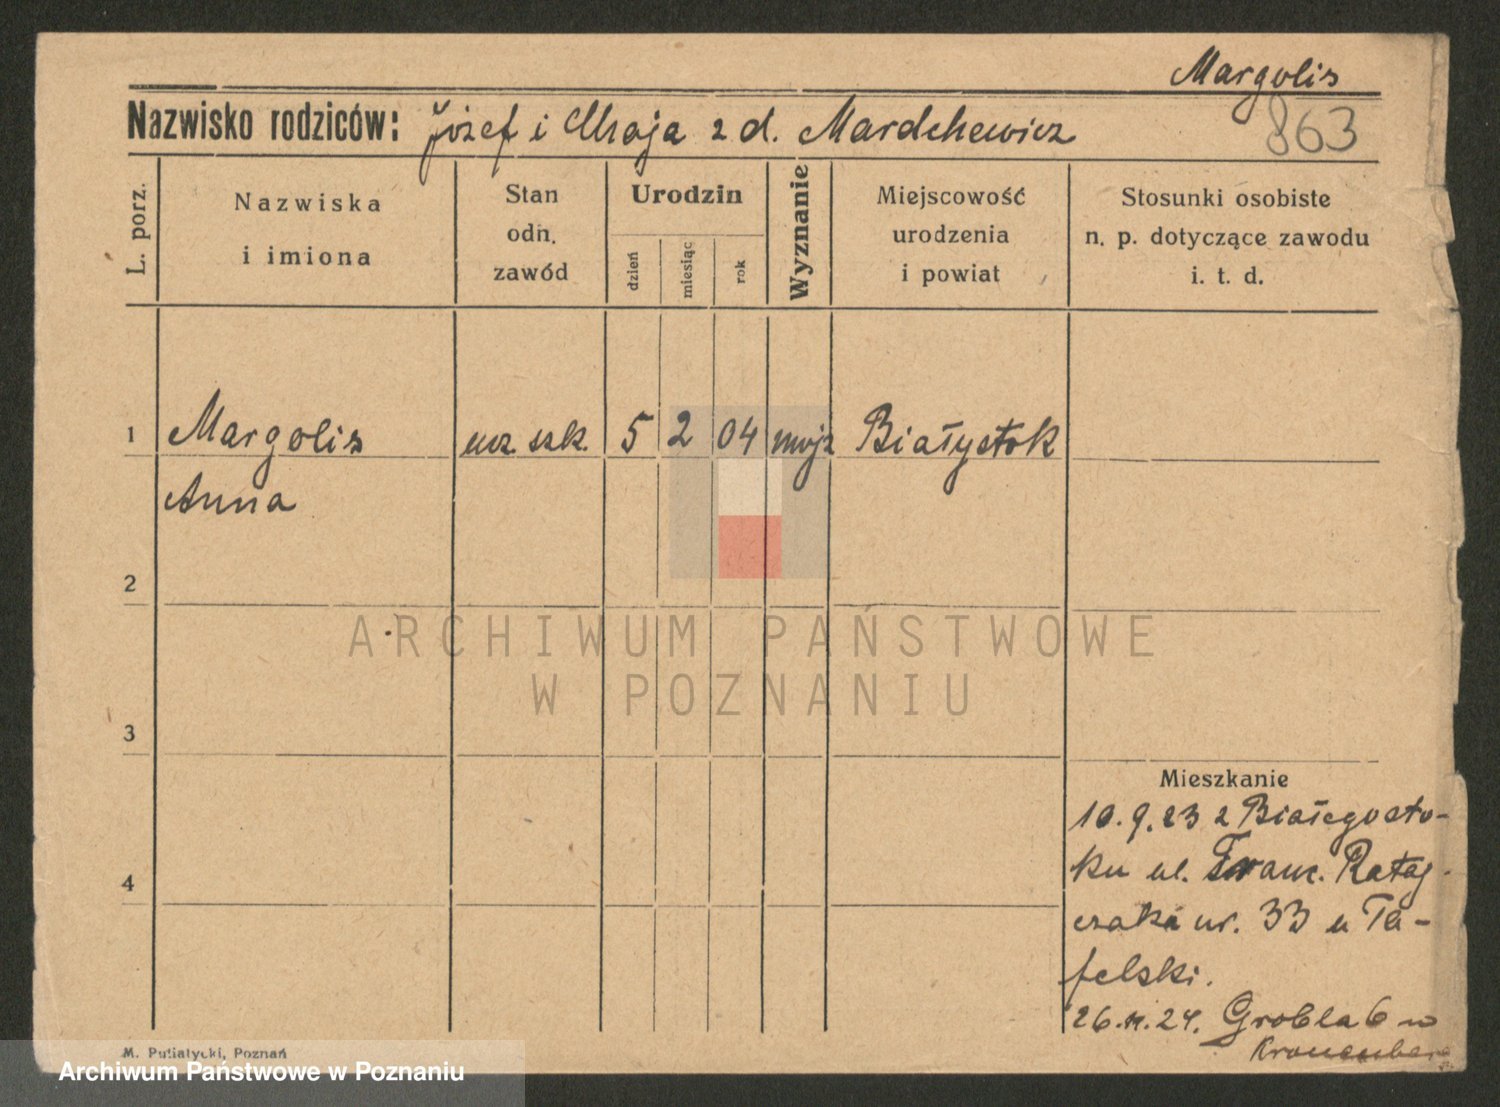 Margolis
863
Nazwisko rodziców: Józef i Chaja z d. Mardchewicz
L. porz.
Nazwiska
i imiona
Stan
odn.
zawód
Urodzin
dzień
miesiąc
rok
Wyznanie
Miejscowość
urodzenia
i powiat
Stosunki osobiste
n. p. dotyczące zawodu
i. t. d.
1 Margolis ucz. szk. 5 2 04 mojż Białystok
Anna
2
3
4
Mieszkanie
10.9.23 z Białegosto-
ku ul. Franc. Rataj-
czaka nr. 33 u Ta-
felski.
26. 24. Grobla 6 u
ARCHIWUM PAŃSTWOWE
W POZNANIU
M. Putiatycki, Poznań
Archiwum Państwowe w Poznaniu